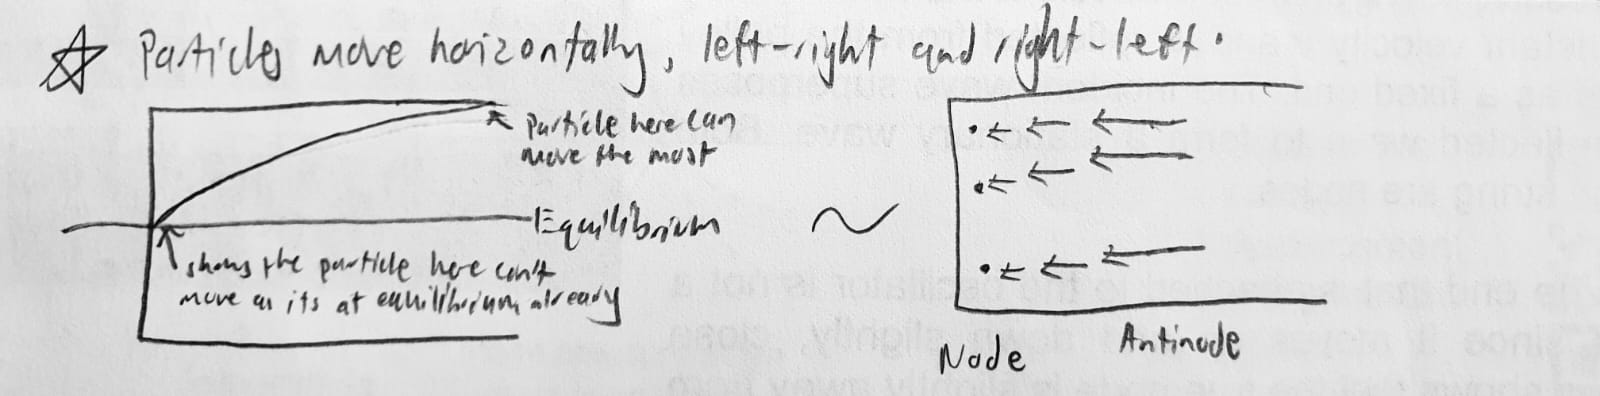 ☆ Particles move horizontally, left-right and right-left.
Particle here can
move the most
Equilibrium
shows the particle here can't
move as its at equilibrium already
Node
Antinode